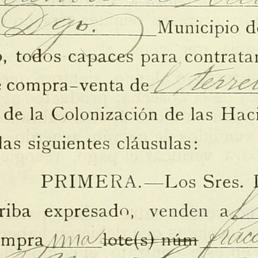 Dgo. Municipio d
o, todos capaces para contratar
e compra-venta de l terre
de la Colonización de las Haci
las siguientes cláusulas:
PRIMERA.—Los Sres. I
riba expresado, venden a
mpra una lote(s) núm fracc